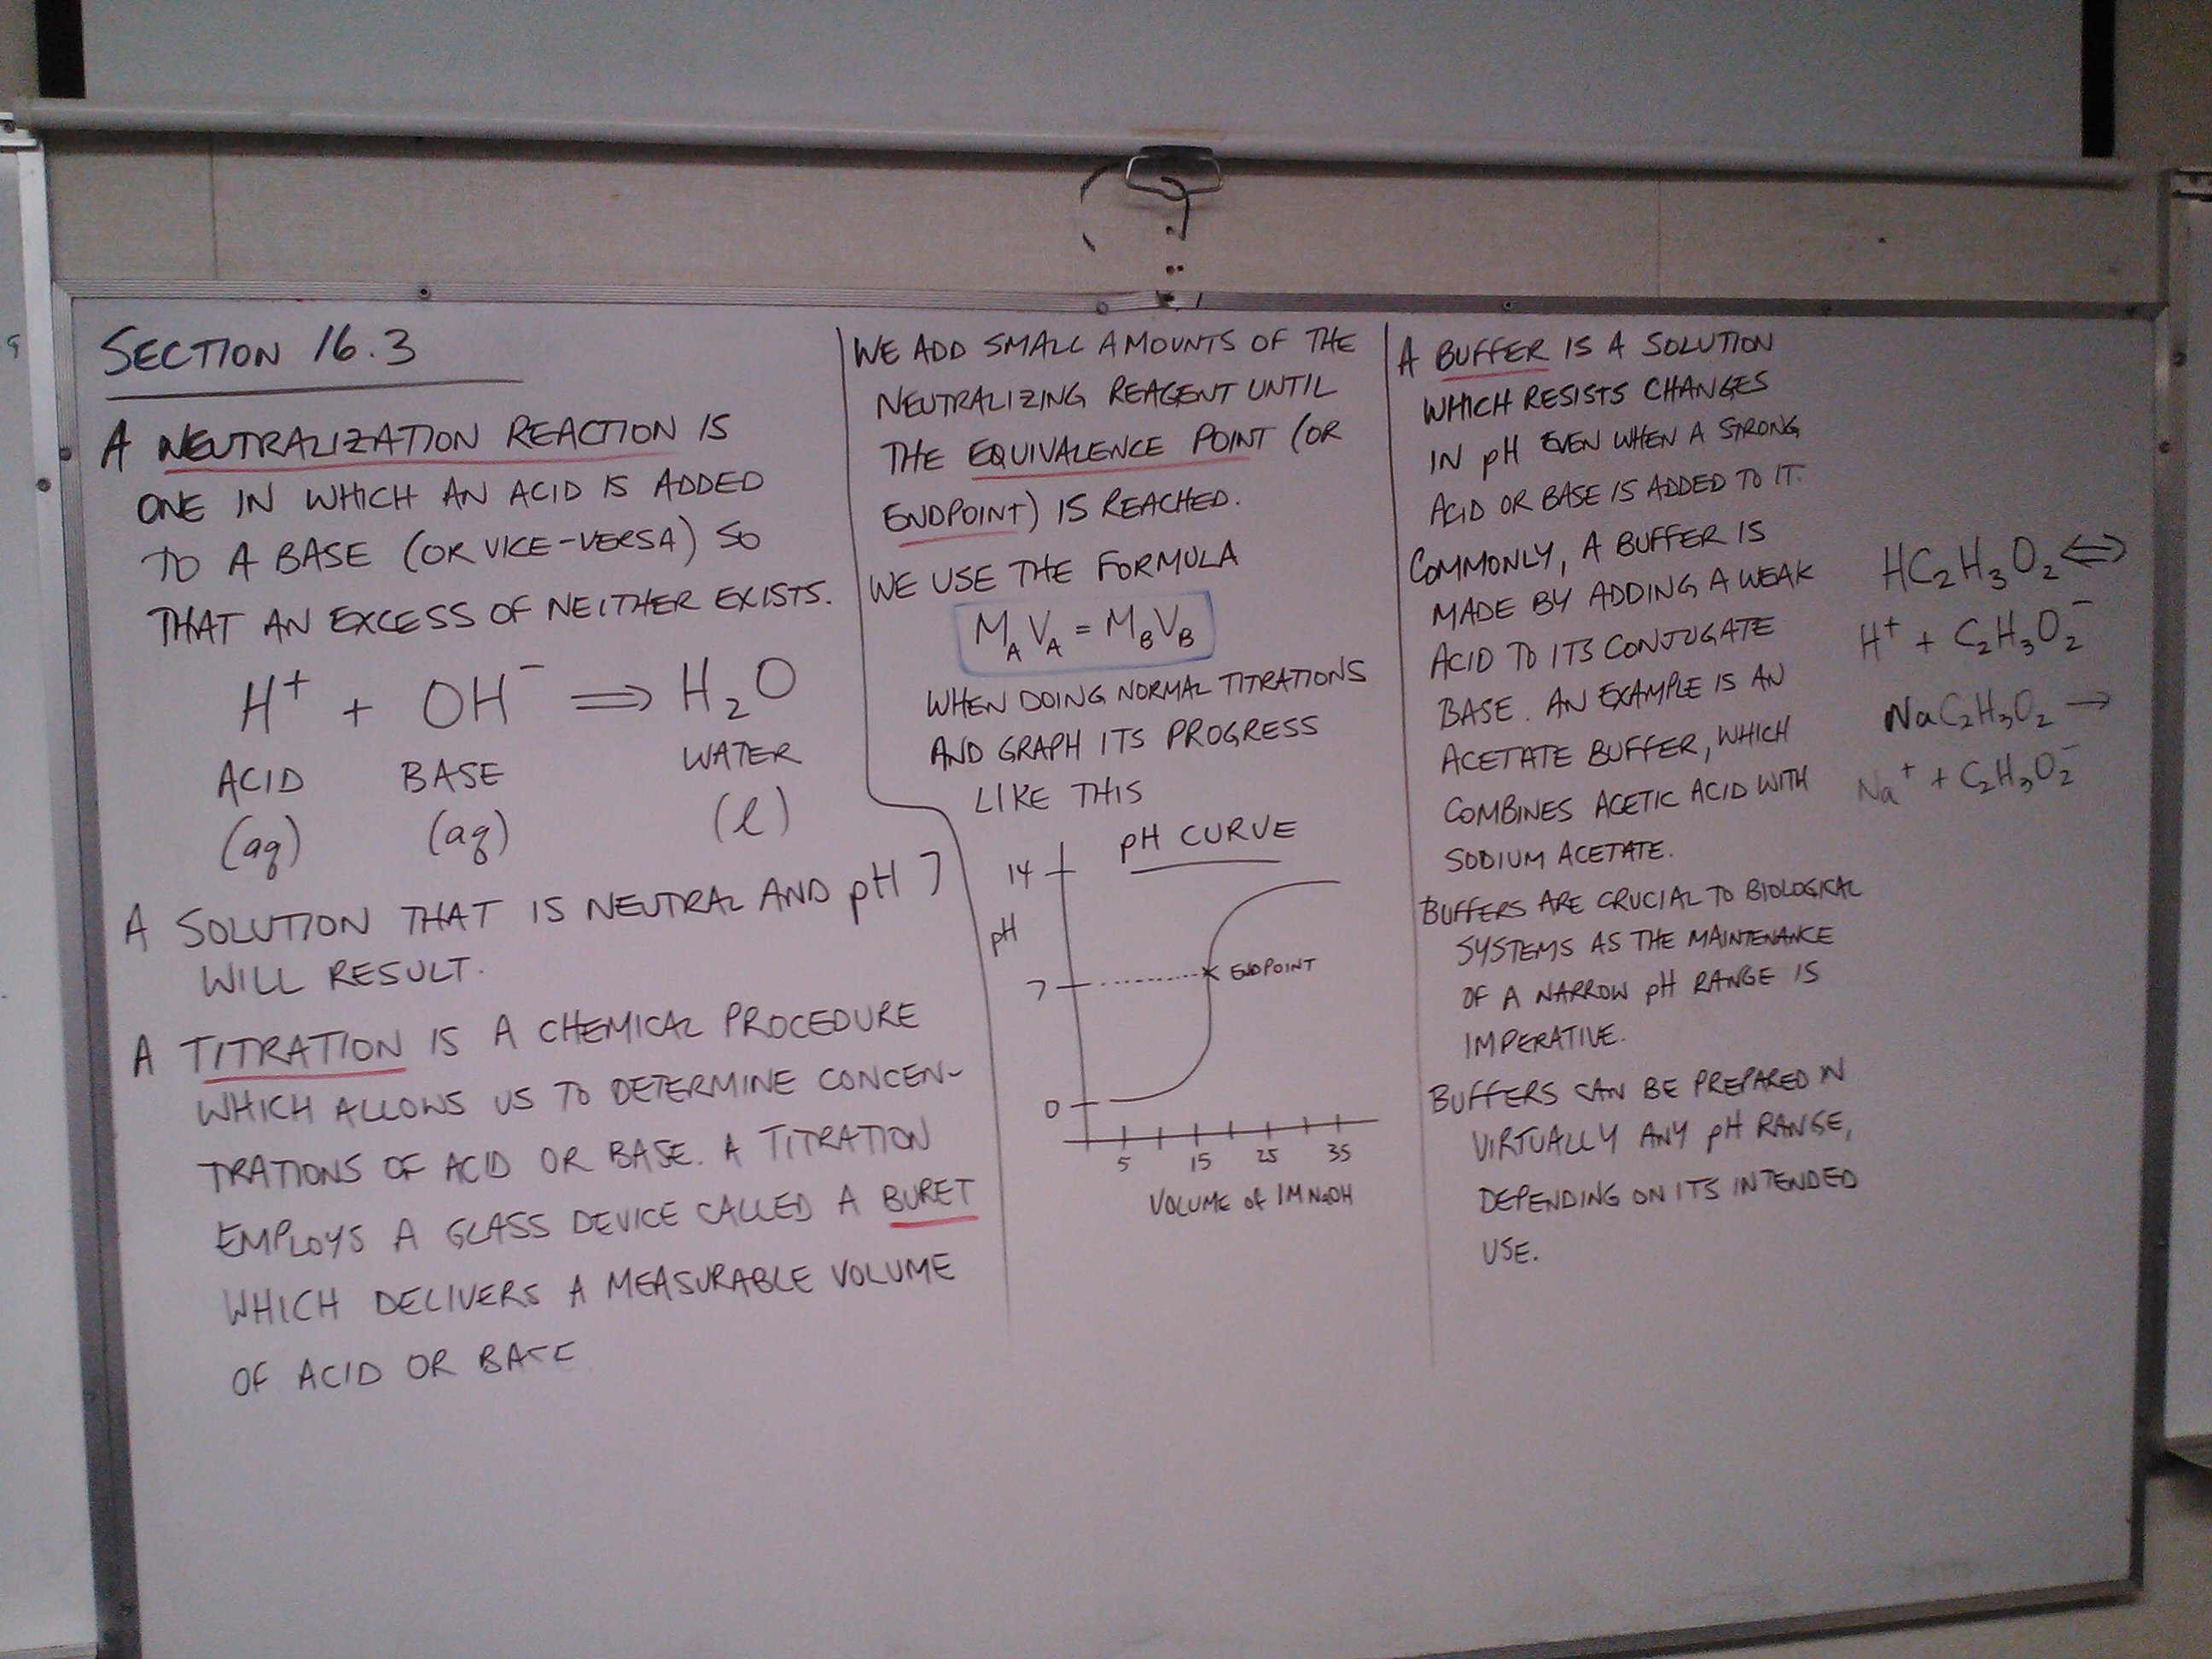 SECTION 16.3
A NEUTRALIZATION REACTION IS
ONE IN WHICH AN ACID IS ADDED
TO A BASE (OR VICE-VERSA) SO
THAT AN EXCESS OF NEITHER EXISTS.
H⁺ + OH⁻ ⇒ H₂O
ACID BASE WATER
(aq) (aq) (l)
A SOLUTION THAT IS NEUTRAL AND pH 7
WILL RESULT.
A TITRATION IS A CHEMICAL PROCEDURE
WHICH ALLOWS US TO DETERMINE CONCEN-
TRATIONS OF ACID OR BASE. A TITRATION
EMPLOYS A GLASS DEVICE CALLED A BURET
WHICH DELIVERS A MEASURABLE VOLUME
OF ACID OR BASE
WE ADD SMALL AMOUNTS OF THE
NEUTRALIZING REAGENT UNTIL
THE EQUIVALENCE POINT (OR
ENDPOINT) IS REACHED.
WE USE THE FORMULA
M_A V_A = M_B V_B
WHEN DOING NORMAL TITRATIONS
AND GRAPH ITS PROGRESS
LIKE THIS
pH CURVE
14
pH
7
ENDPOINT
0
5 15 25 35
VOLUME of 1M NaOH
A BUFFER IS A SOLUTION
WHICH RESISTS CHANGES
IN pH EVEN WHEN A STRONG
ACID OR BASE IS ADDED TO IT.
COMMONLY, A BUFFER IS
MADE BY ADDING A WEAK
ACID TO ITS CONJUGATE
BASE. AN EXAMPLE IS AN
ACETATE BUFFER, WHICH
COMBINES ACETIC ACID WITH
SODIUM ACETATE.
BUFFERS ARE CRUCIAL TO BIOLOGICAL
SYSTEMS AS THE MAINTENANCE
OF A NARROW pH RANGE IS
IMPERATIVE.
BUFFERS CAN BE PREPARED IN
VIRTUALLY ANY pH RANGE,
DEPENDING ON ITS INTENDED
USE.
HC₂H₃O₂ ⇔
H⁺ + C₂H₃O₂⁻
NaC₂H₃O₂ →
Na⁺ + C₂H₃O₂⁻